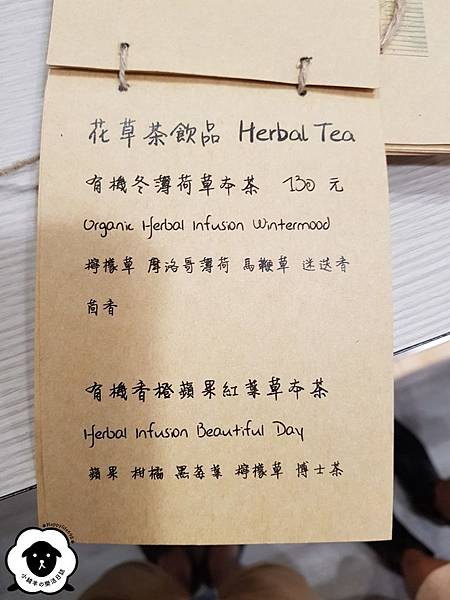 花草茶飲品 Herbal Tea
有機冬薄荷草本茶 130 元
Organic Herbal Infusion Wintermood
檸檬草 摩洛哥薄荷 馬鞭草 迷迭香
茴香
有機香橙蘋果紅葉草本茶
Herbal Infusion Beautiful Day
蘋果 柑橘 黑莓葉 檸檬草 博士茶
小綿羊の樂活日誌